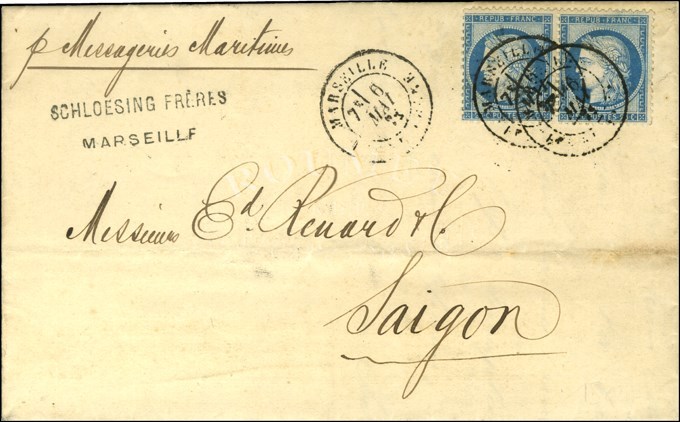 p Messageries Maritimes
SCHLOESING FRÈRES
MARSEILLE
MARSEILLE
6
MAI
73
REPUB. FRANC.
REPUB. FRANC.
MARSEILLE
POSTES
Messieurs Ed. Renard & C.
Saigon